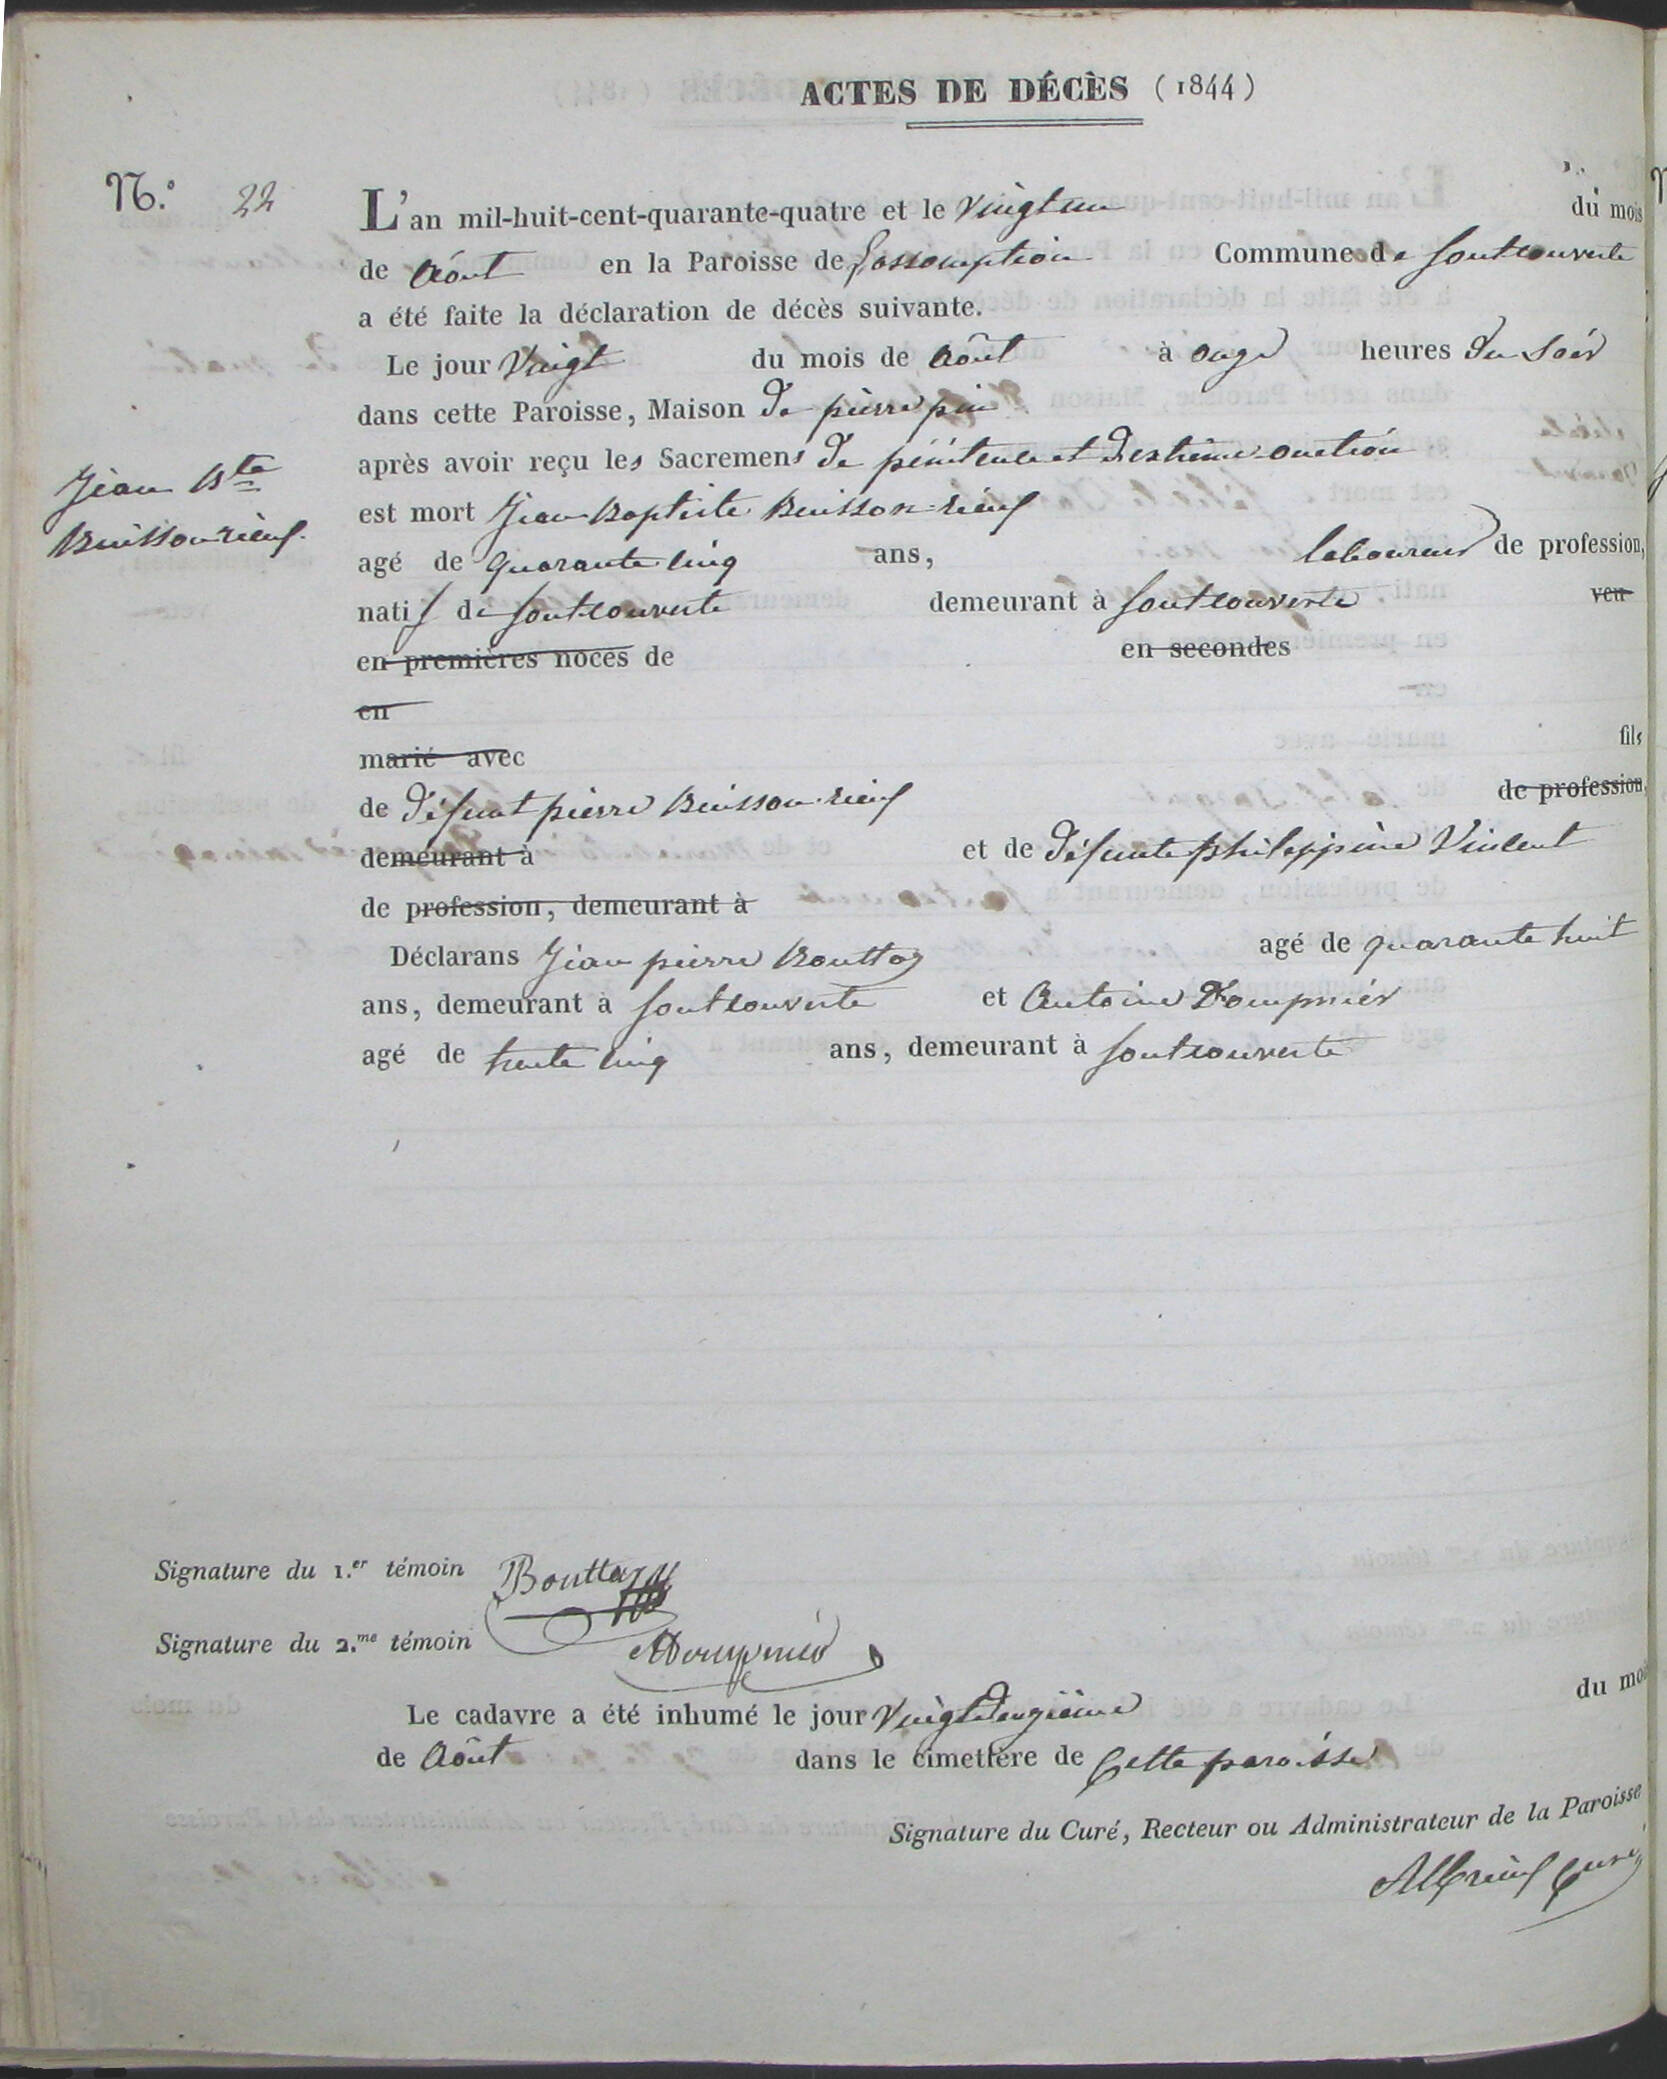 ACTES DE DÉCÈS (1844)
N.º 22
L'an mil-huit-cent-quarante-quatre et le Vingt un du mois
de Aôut en la Paroisse de Lassomption Commune de fontcouverte
a été faite la déclaration de décès suivante.
Le jour Vingt du mois de Aôut à onze heures du Soir
dans cette Paroisse, Maison de pierre pin
après avoir reçu les Sacremens de pénitence et d'extrême onction
Jean Bte
Buisson rieuf.
est mort Jean Baptiste Buisson-rieuf
agé de quarante cinq ans, laboureur de profession,
natif de fontcouverte demeurant à fontcouverte veu
en premières noces de en secondes
en
marié avec fils
de défunt pierre Buisson-rieuf de profession,
demeurant à et de défunte philippine Vincent
de profession, demeurant à
Déclarans Jean pierre Bouttaz agé de quarante huit
ans, demeurant à fontcouverte et Antoine Dompnier
agé de trente cinq ans, demeurant à fontcouverte
Signature du 1.er témoin Bouttaz
Signature du 2.me témoin ADompnier
Le cadavre a été inhumé le jour Vingt deuzième du mo
de Aôut dans le cimetière de Cette paroisse
Signature du Curé, Recteur ou Administrateur de la Paroisse
Curé